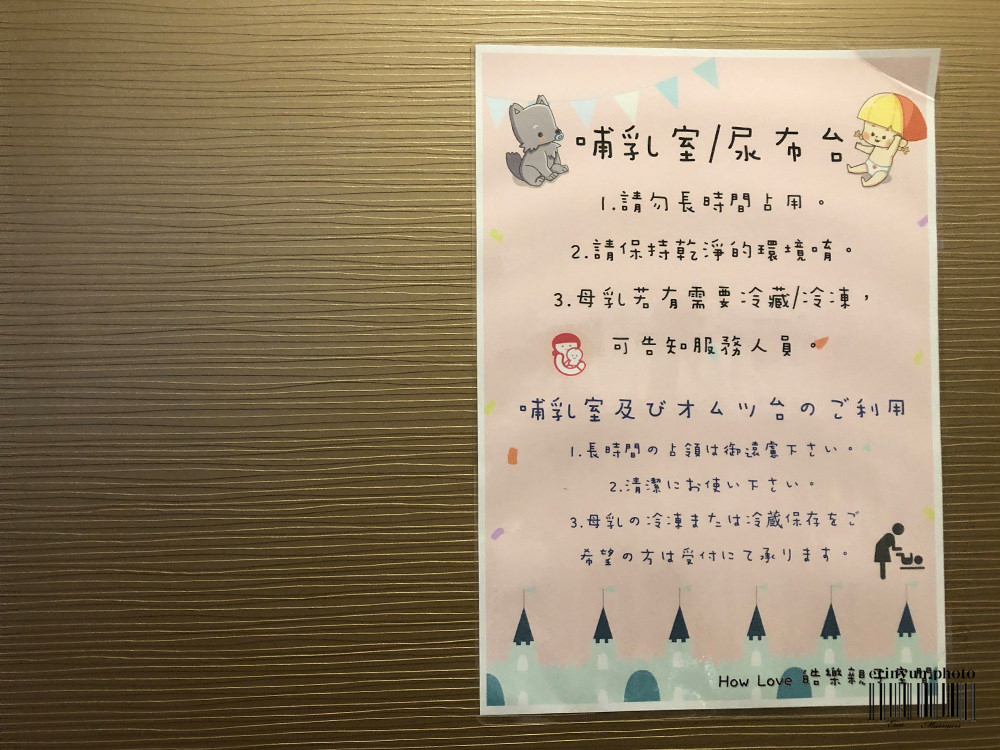 哺乳室/尿布台
1.請勿長時間占用。
2.請保持乾淨的環境唷。
3.母乳若有需要冷藏/冷凍，
可告知服務人員。
哺乳室及びオムツ台のご利用
1.長時間の占領は御遠慮下さい。
2.清潔にお使い下さい。
3.母乳の冷凍または冷蔵保存をご
希望の方は受付にて承ります。
How Love 皓樂親子空間
erinyun.photo